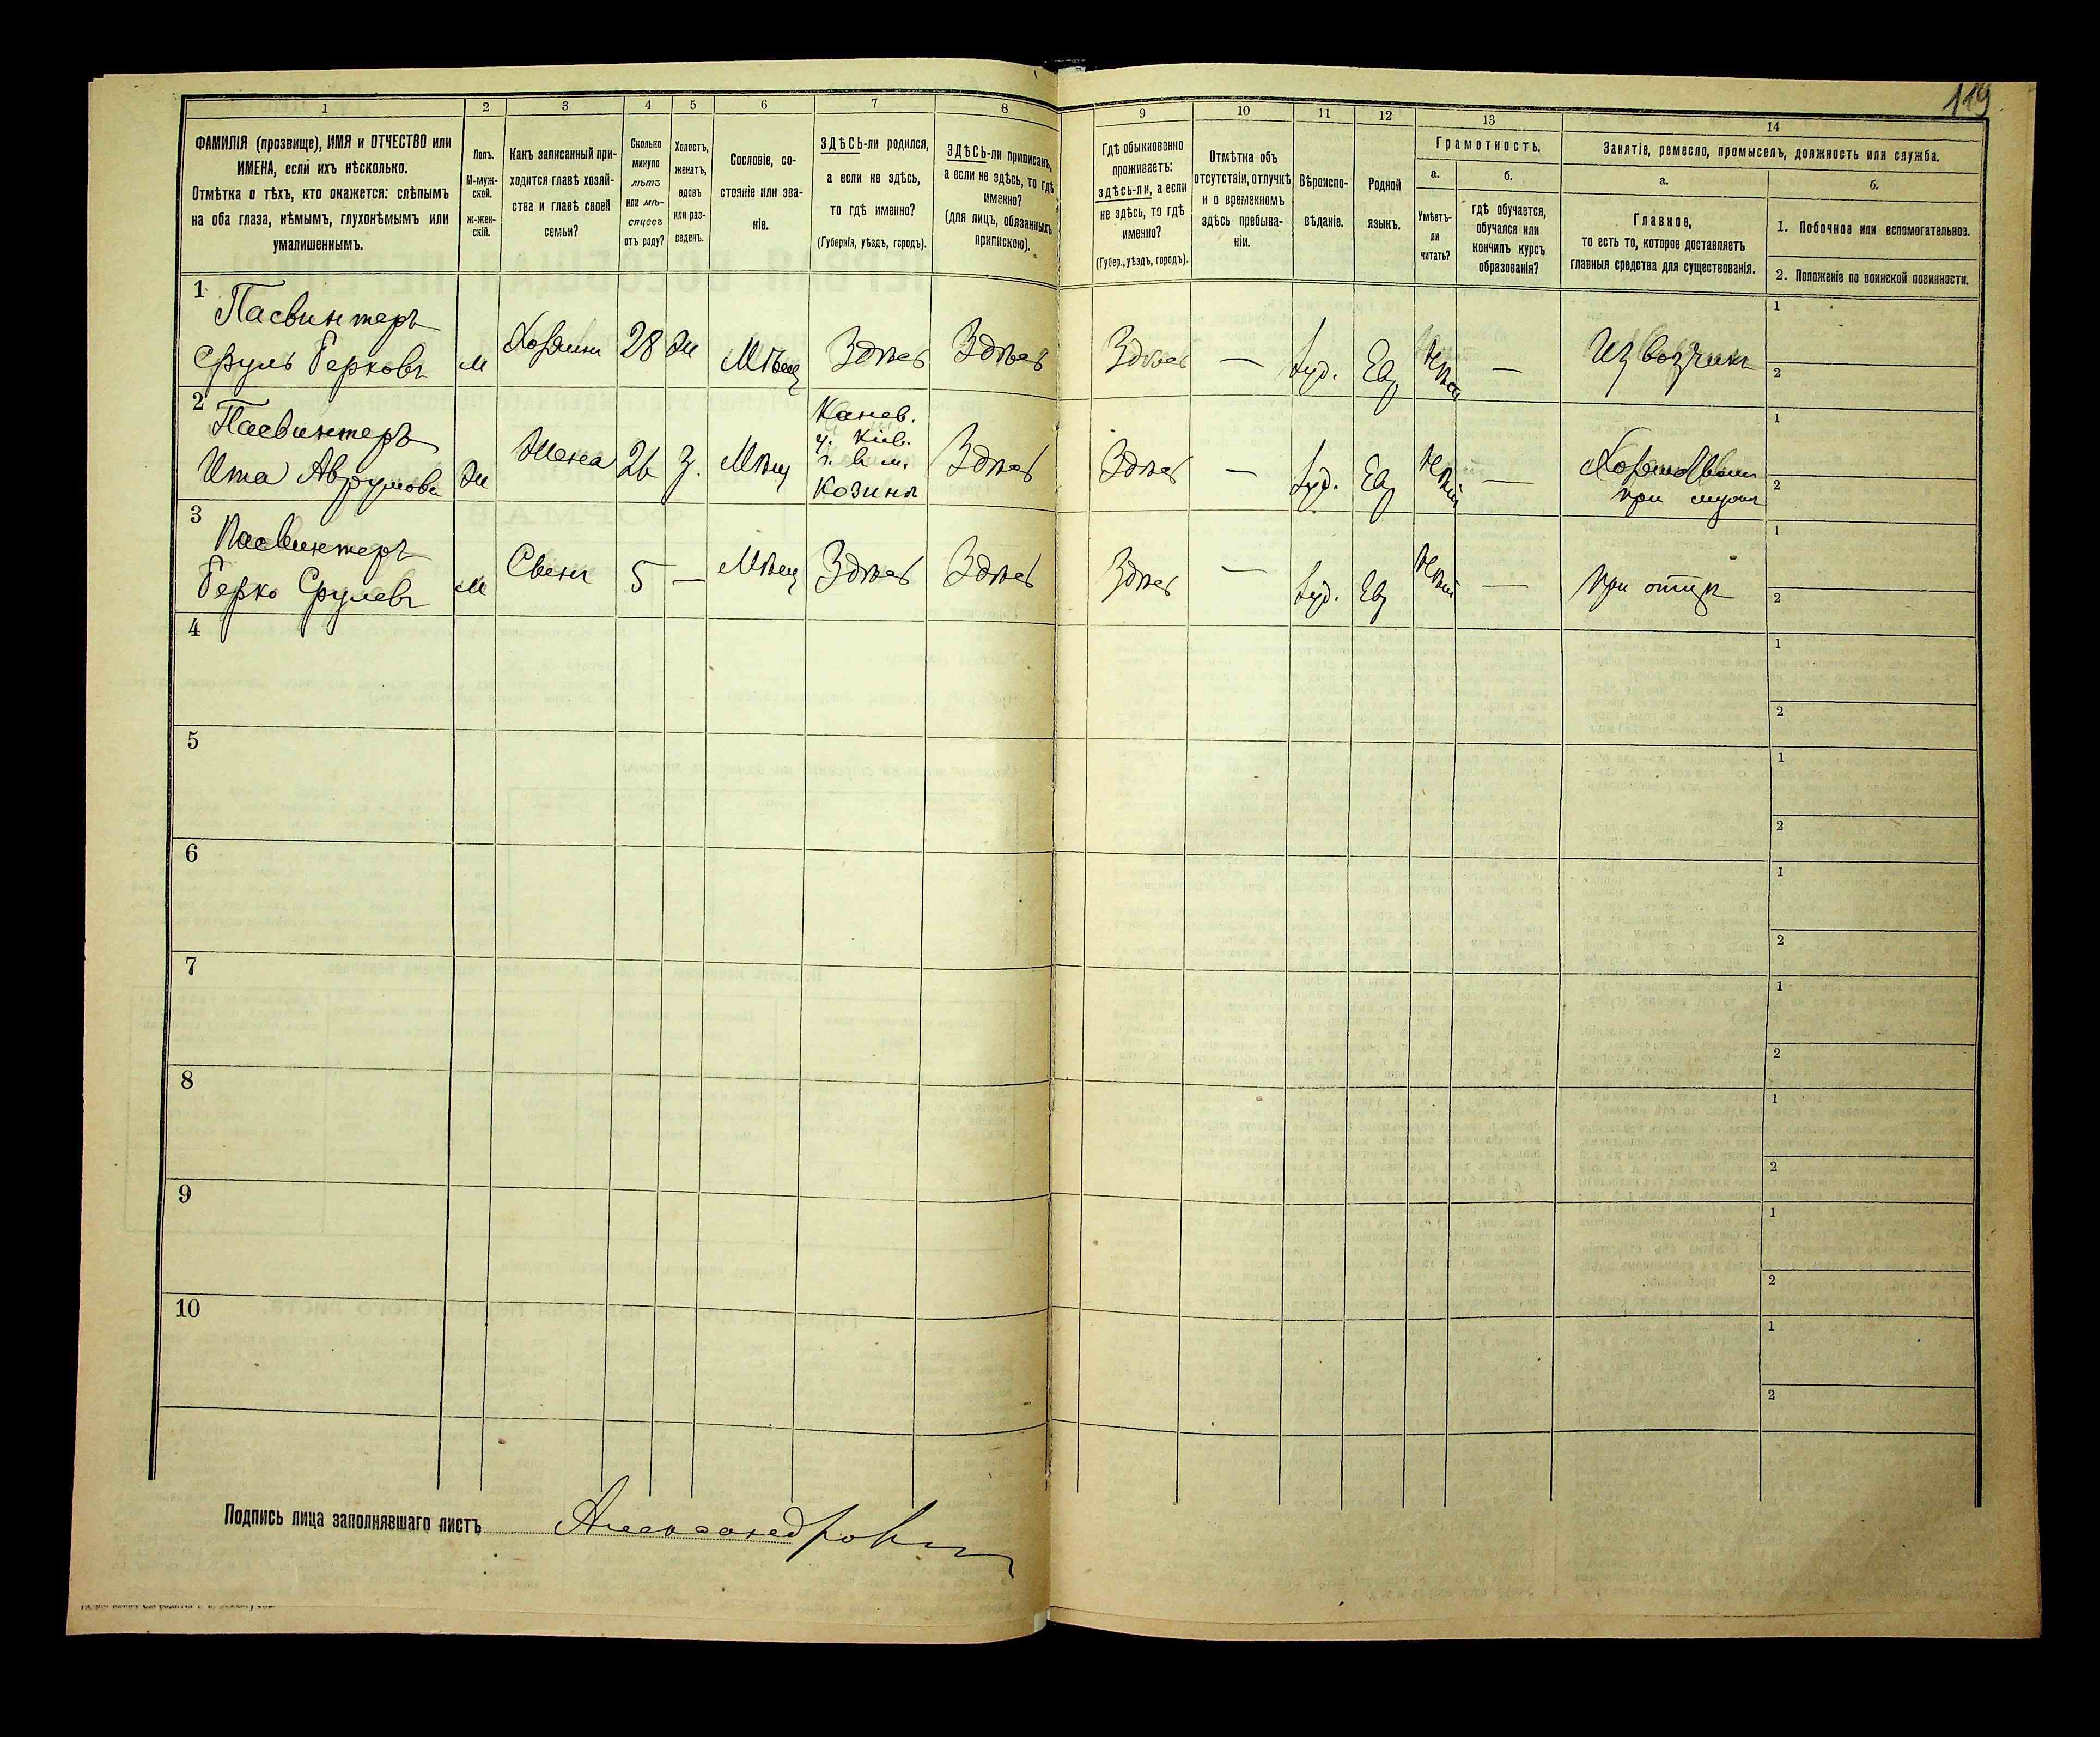 119
1
2
3
4
5
6
7
8
9
10
11
12
13
14
ФАМИЛІЯ (прозвище), ИМЯ и ОТЧЕСТВО или
ИМЕНА, если ихъ нѣсколько.
Отмѣтка о тѣхъ, кто окажется: слѣпымъ
на оба глаза, нѣмымъ, глухонѣмымъ или
умалишеннымъ.
Полъ.
М-муж-
ской.
ж-жен-
скій.
Какъ записанный при-
ходится главѣ хозяй-
ства и главѣ своей
семьи?
Сколько
минуло
лѣтъ
или мѣ-
сяцевъ
отъ роду?
Холостъ,
женатъ,
вдовъ
или раз-
веденъ.
Сословіе, со-
стояніе или зва-
ніе.
ЗДѢСЬ-ли родился,
а если не здѣсь,
то гдѣ именно?
(Губернія, уѣздъ, городъ).
ЗДѢСЬ-ли приписанъ,
а если не здѣсь, то гдѣ
именно?
(для лицъ, обязанныхъ
припискою).
Гдѣ обыкновенно
проживаетъ:
здѣсь-ли, а если
не здѣсь, то гдѣ
именно?
(Губер., уѣздъ, городъ).
Отмѣтка объ
отсутствіи, отлучкѣ
и о временномъ
здѣсь пребыва-
ніи.
Вѣроиспо-
вѣданіе.
Родной
языкъ.
Грамотность.
а.
Умѣетъ-
ли
читать?
б.
гдѣ обучается,
обучался или
кончилъ курсъ
образованія?
Занятіе, ремесло, промыселъ, должность или служба.
а.
Главное,
то есть то, которое доставляетъ
главныя средства для существованія.
б.
1. Побочное или вспомогательное.
2. Положеніе по воинской повинности.
1
Пасвинтеръ
Сруль Берковъ
м
Хозяинъ
28
Ж
Мѣщ
Здѣсь
Здѣсь
Здѣсь
—
Іуд.
Ев
—
Извозчикъ
1
2
2
Пасвинтеръ
Ита Аврумова
Ж
Жена
26
З.
Мѣщ
Канев.
у. Кіев.
г. в м.
Козинѣ
Здѣсь
Здѣсь
—
Іуд.
Ев
—
при мужѣ
1
2
3
Пасвинтеръ
Берко Срулевъ
м
Сынъ
5
—
Мѣщ
Здѣсь
Здѣсь
Здѣсь
—
Іуд.
Ев
—
При отцѣ
1
2
4
1
2
5
1
2
6
1
2
7
1
2
8
1
2
9
1
2
10
1
2
Подпись лица заполнявшаго листъ